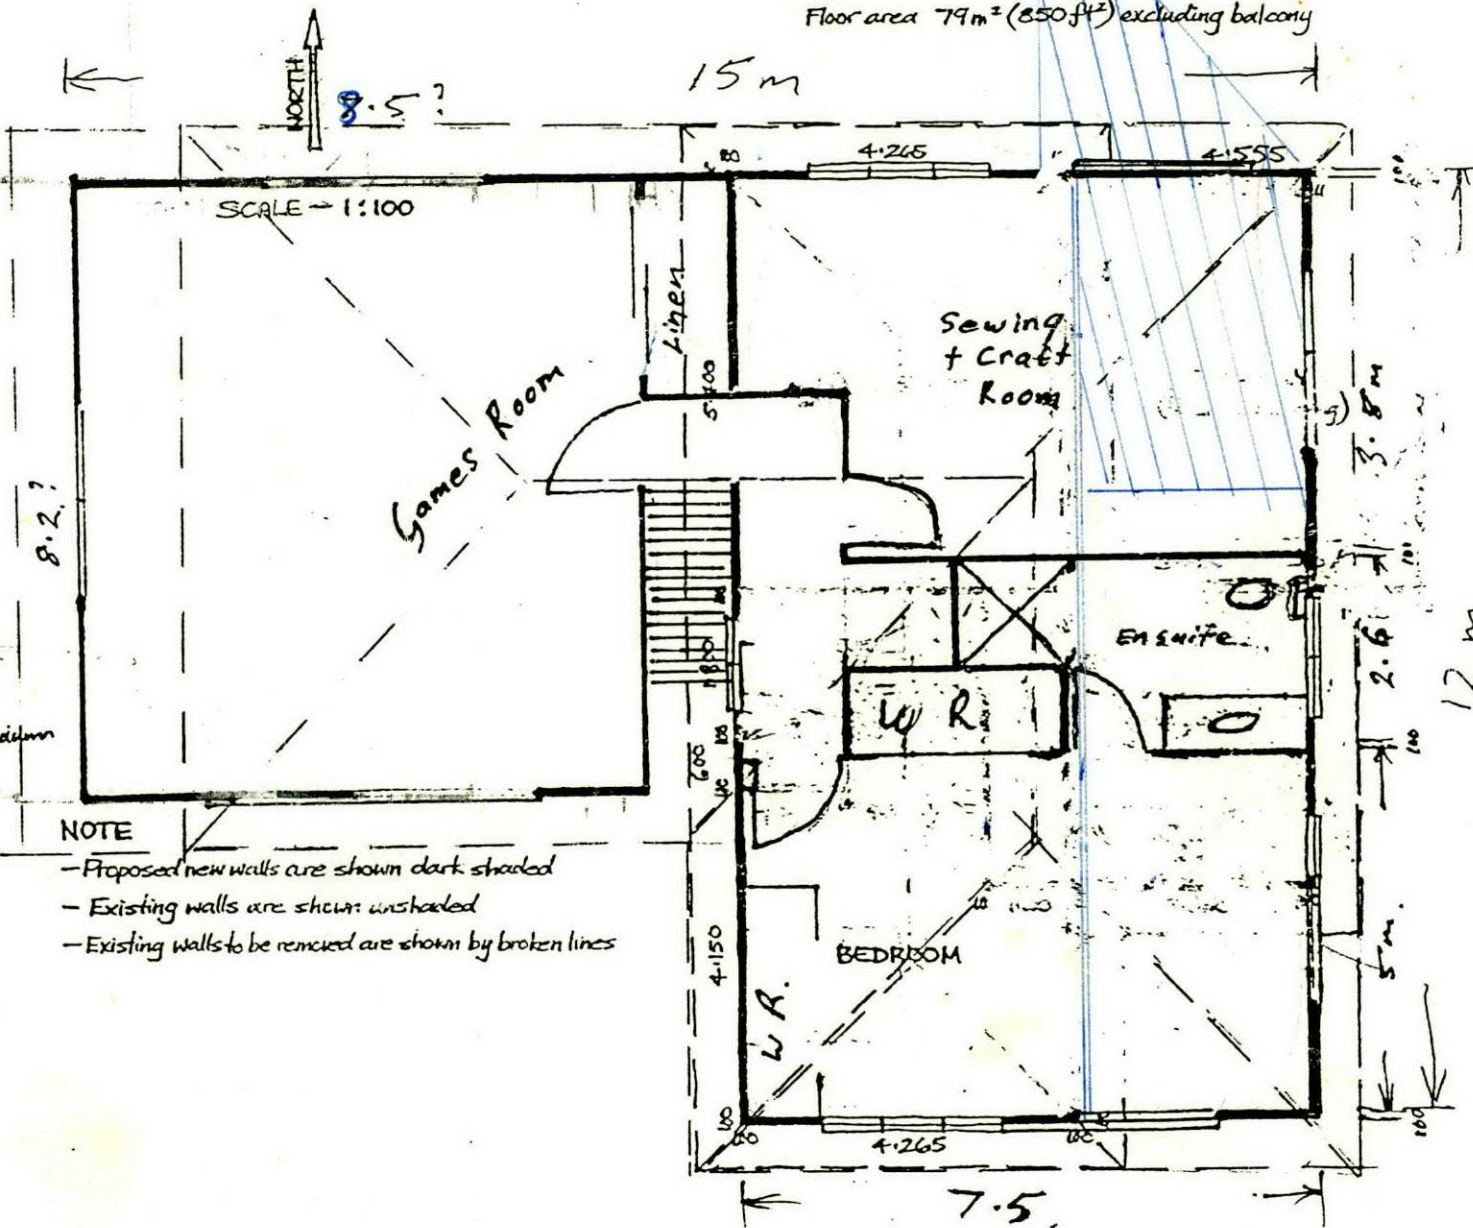 Floor area 79m² (850ft²) excluding balcony
15m
NORTH
8.5?
4.265
4.555
100
SCALE - 1:100
Linen
Sewing
+ Craft
Room
Games Room
5.400
3.8m
8.2?
100
Ensuite
2.6
12 m
1.800
W R
600
100
NOTE
- Proposed new walls are shown dark shaded
- Existing walls are shown unshaded
- Existing walls to be removed are shown by broken lines
4.150
BEDROOM
5m.
W R.
100
100
4.265
7.5